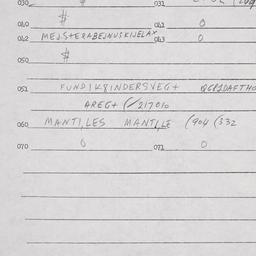 030 031
#
040 041 0
042 MEJSTERABEJNUSKIJELAX 043 0
#
050
051 FUNDIK8INDERSVEG+
AREG+ (/217010
060 MANTI,LES MANTI,LE (904 (332
070 0 071 0